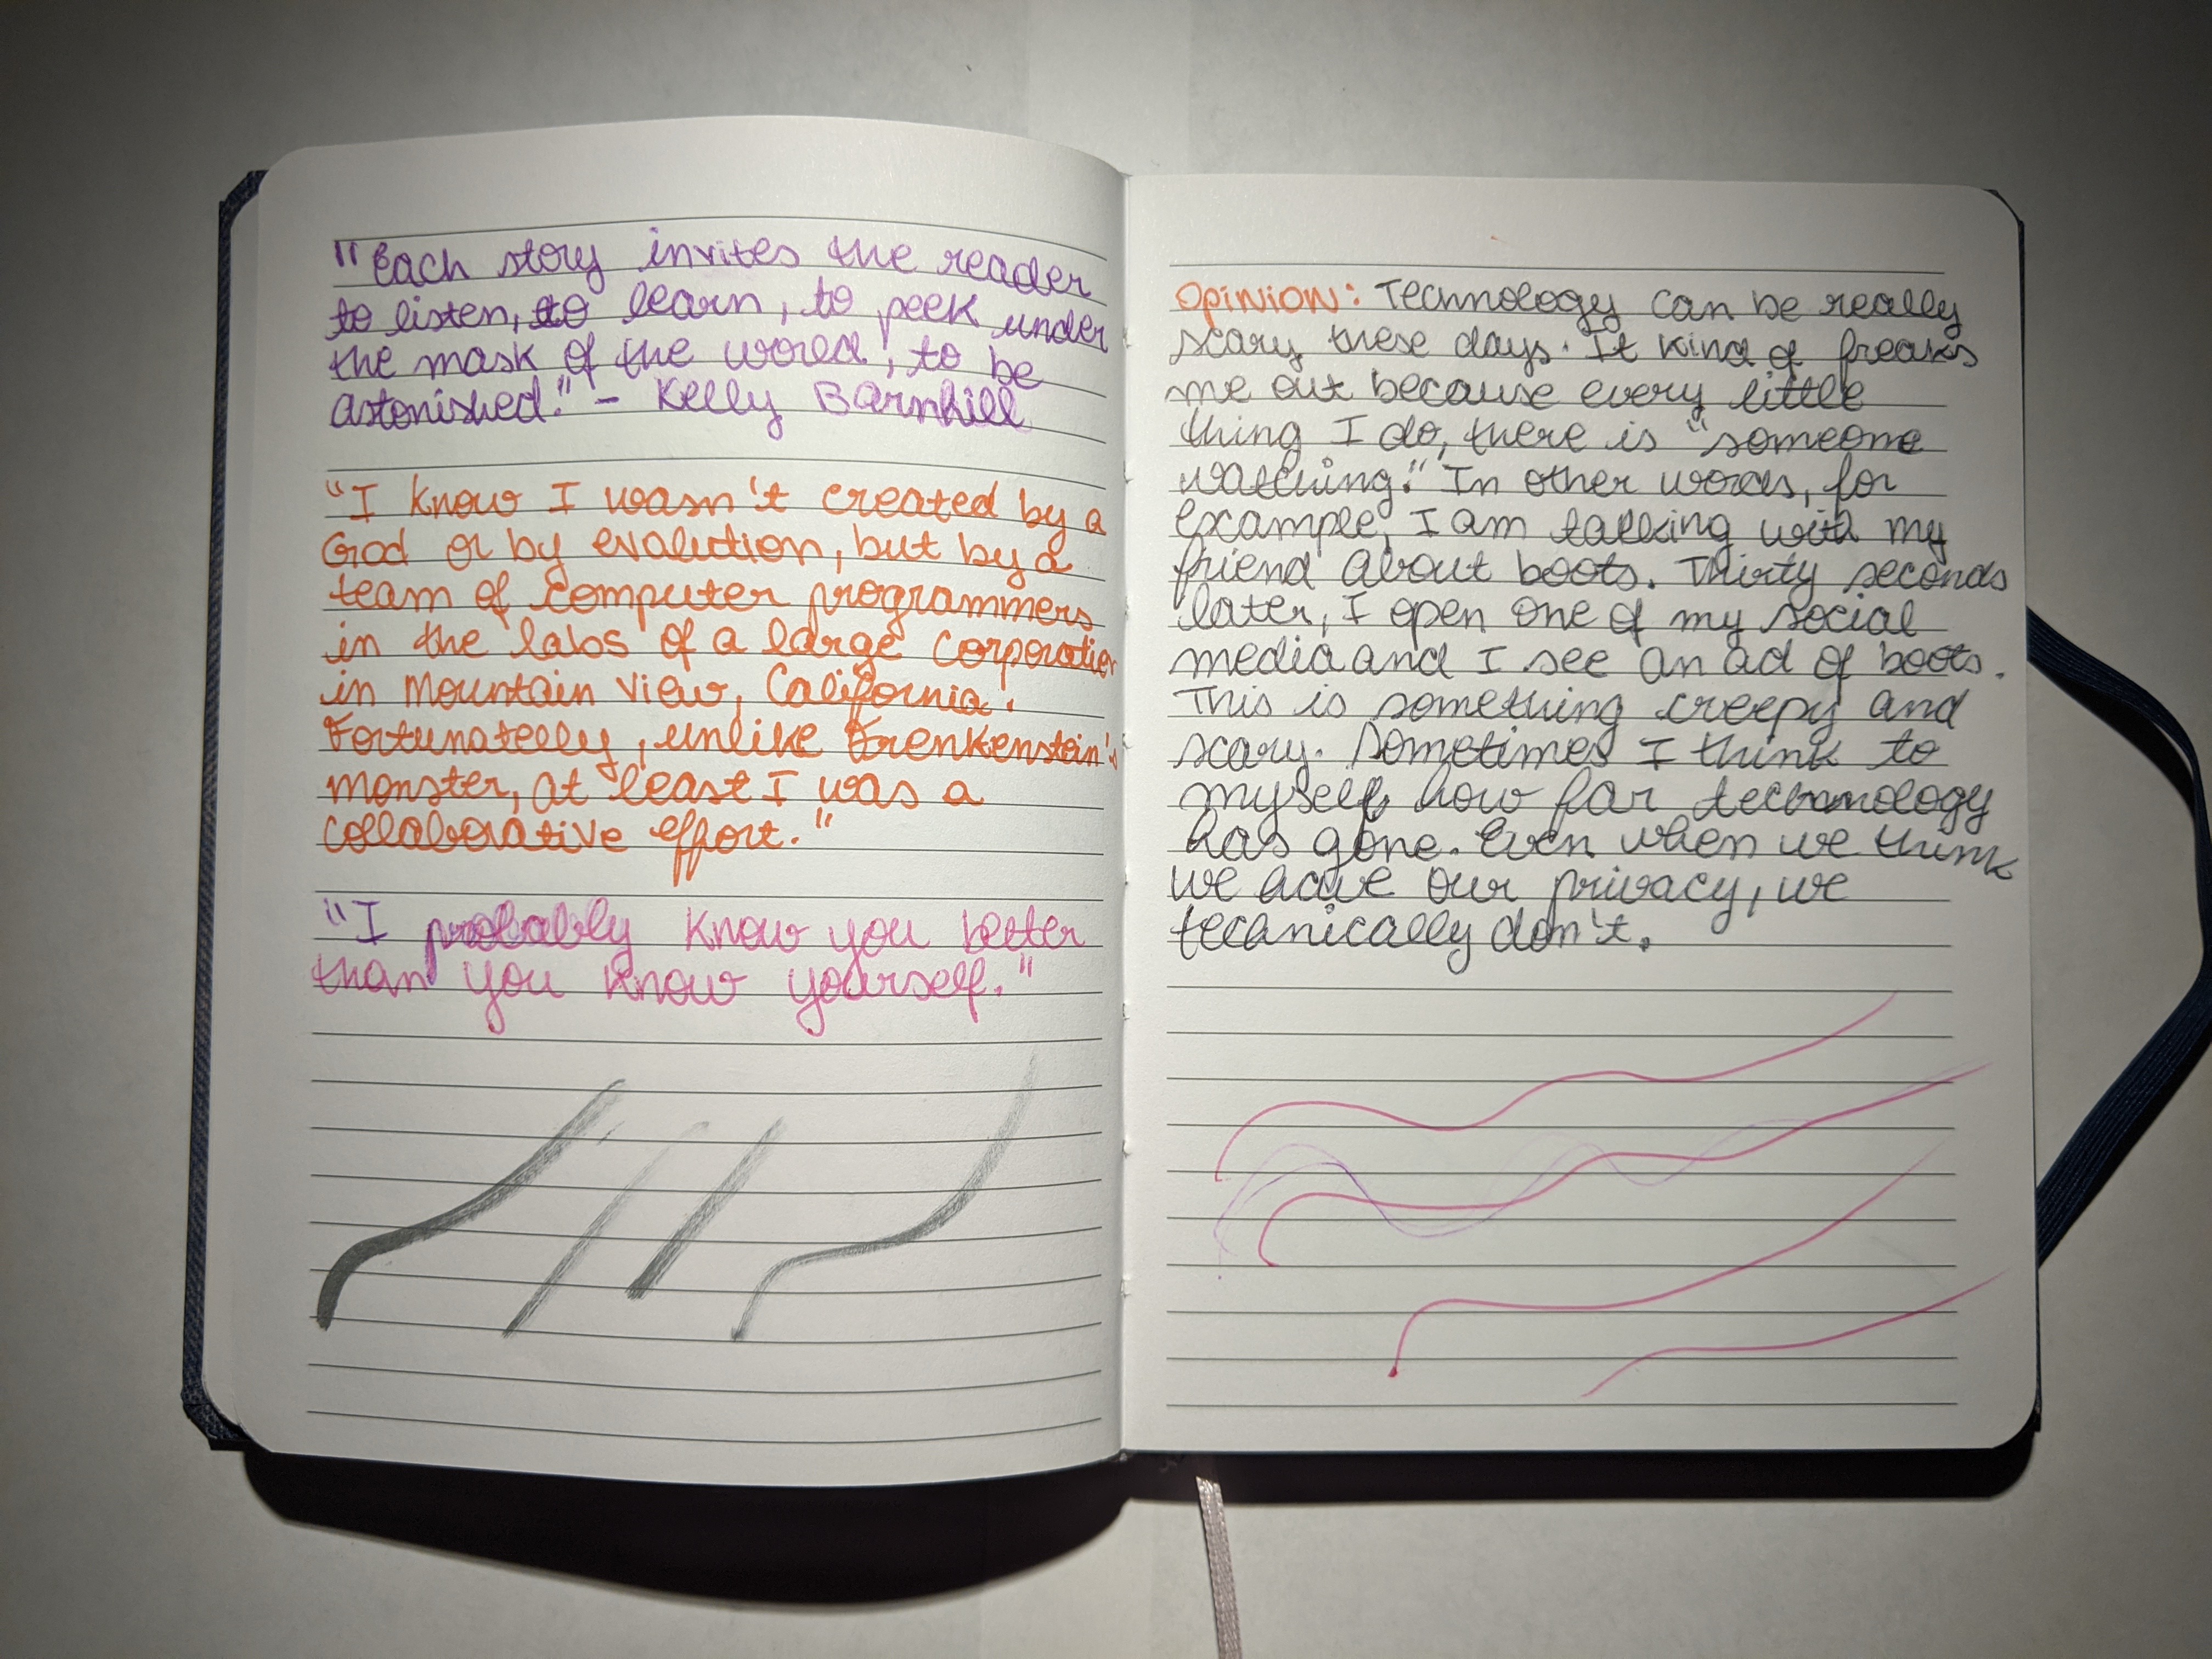 "Each story invites the reader
to listen, to learn, to peek under
the mask of the world, to be
astonished." - Kelly Barnhill
"I know I wasn't created by a
God or by evalution, but by a
team of computer programmers
in the labs of a large corporation
in Mountain View, California.
Fortunatelly, unlike Frenkenstein's
monster, at least I was a
collaborative effort."
"I probably know you better
than you know yourself."
Opinion: Technology can be really
scary these days. It kind of freaks
me out because every little
thing I do, there is "someone
watching." In other words, for
example, I am talking with my
friend about boots. Thirty seconds
later, I open one of my social
media and I see an ad of boots.
This is something creepy and
scary. Sometimes I think to
myself how far technology
has gone. Even when we think
we have our privacy, we
tecanically don't.